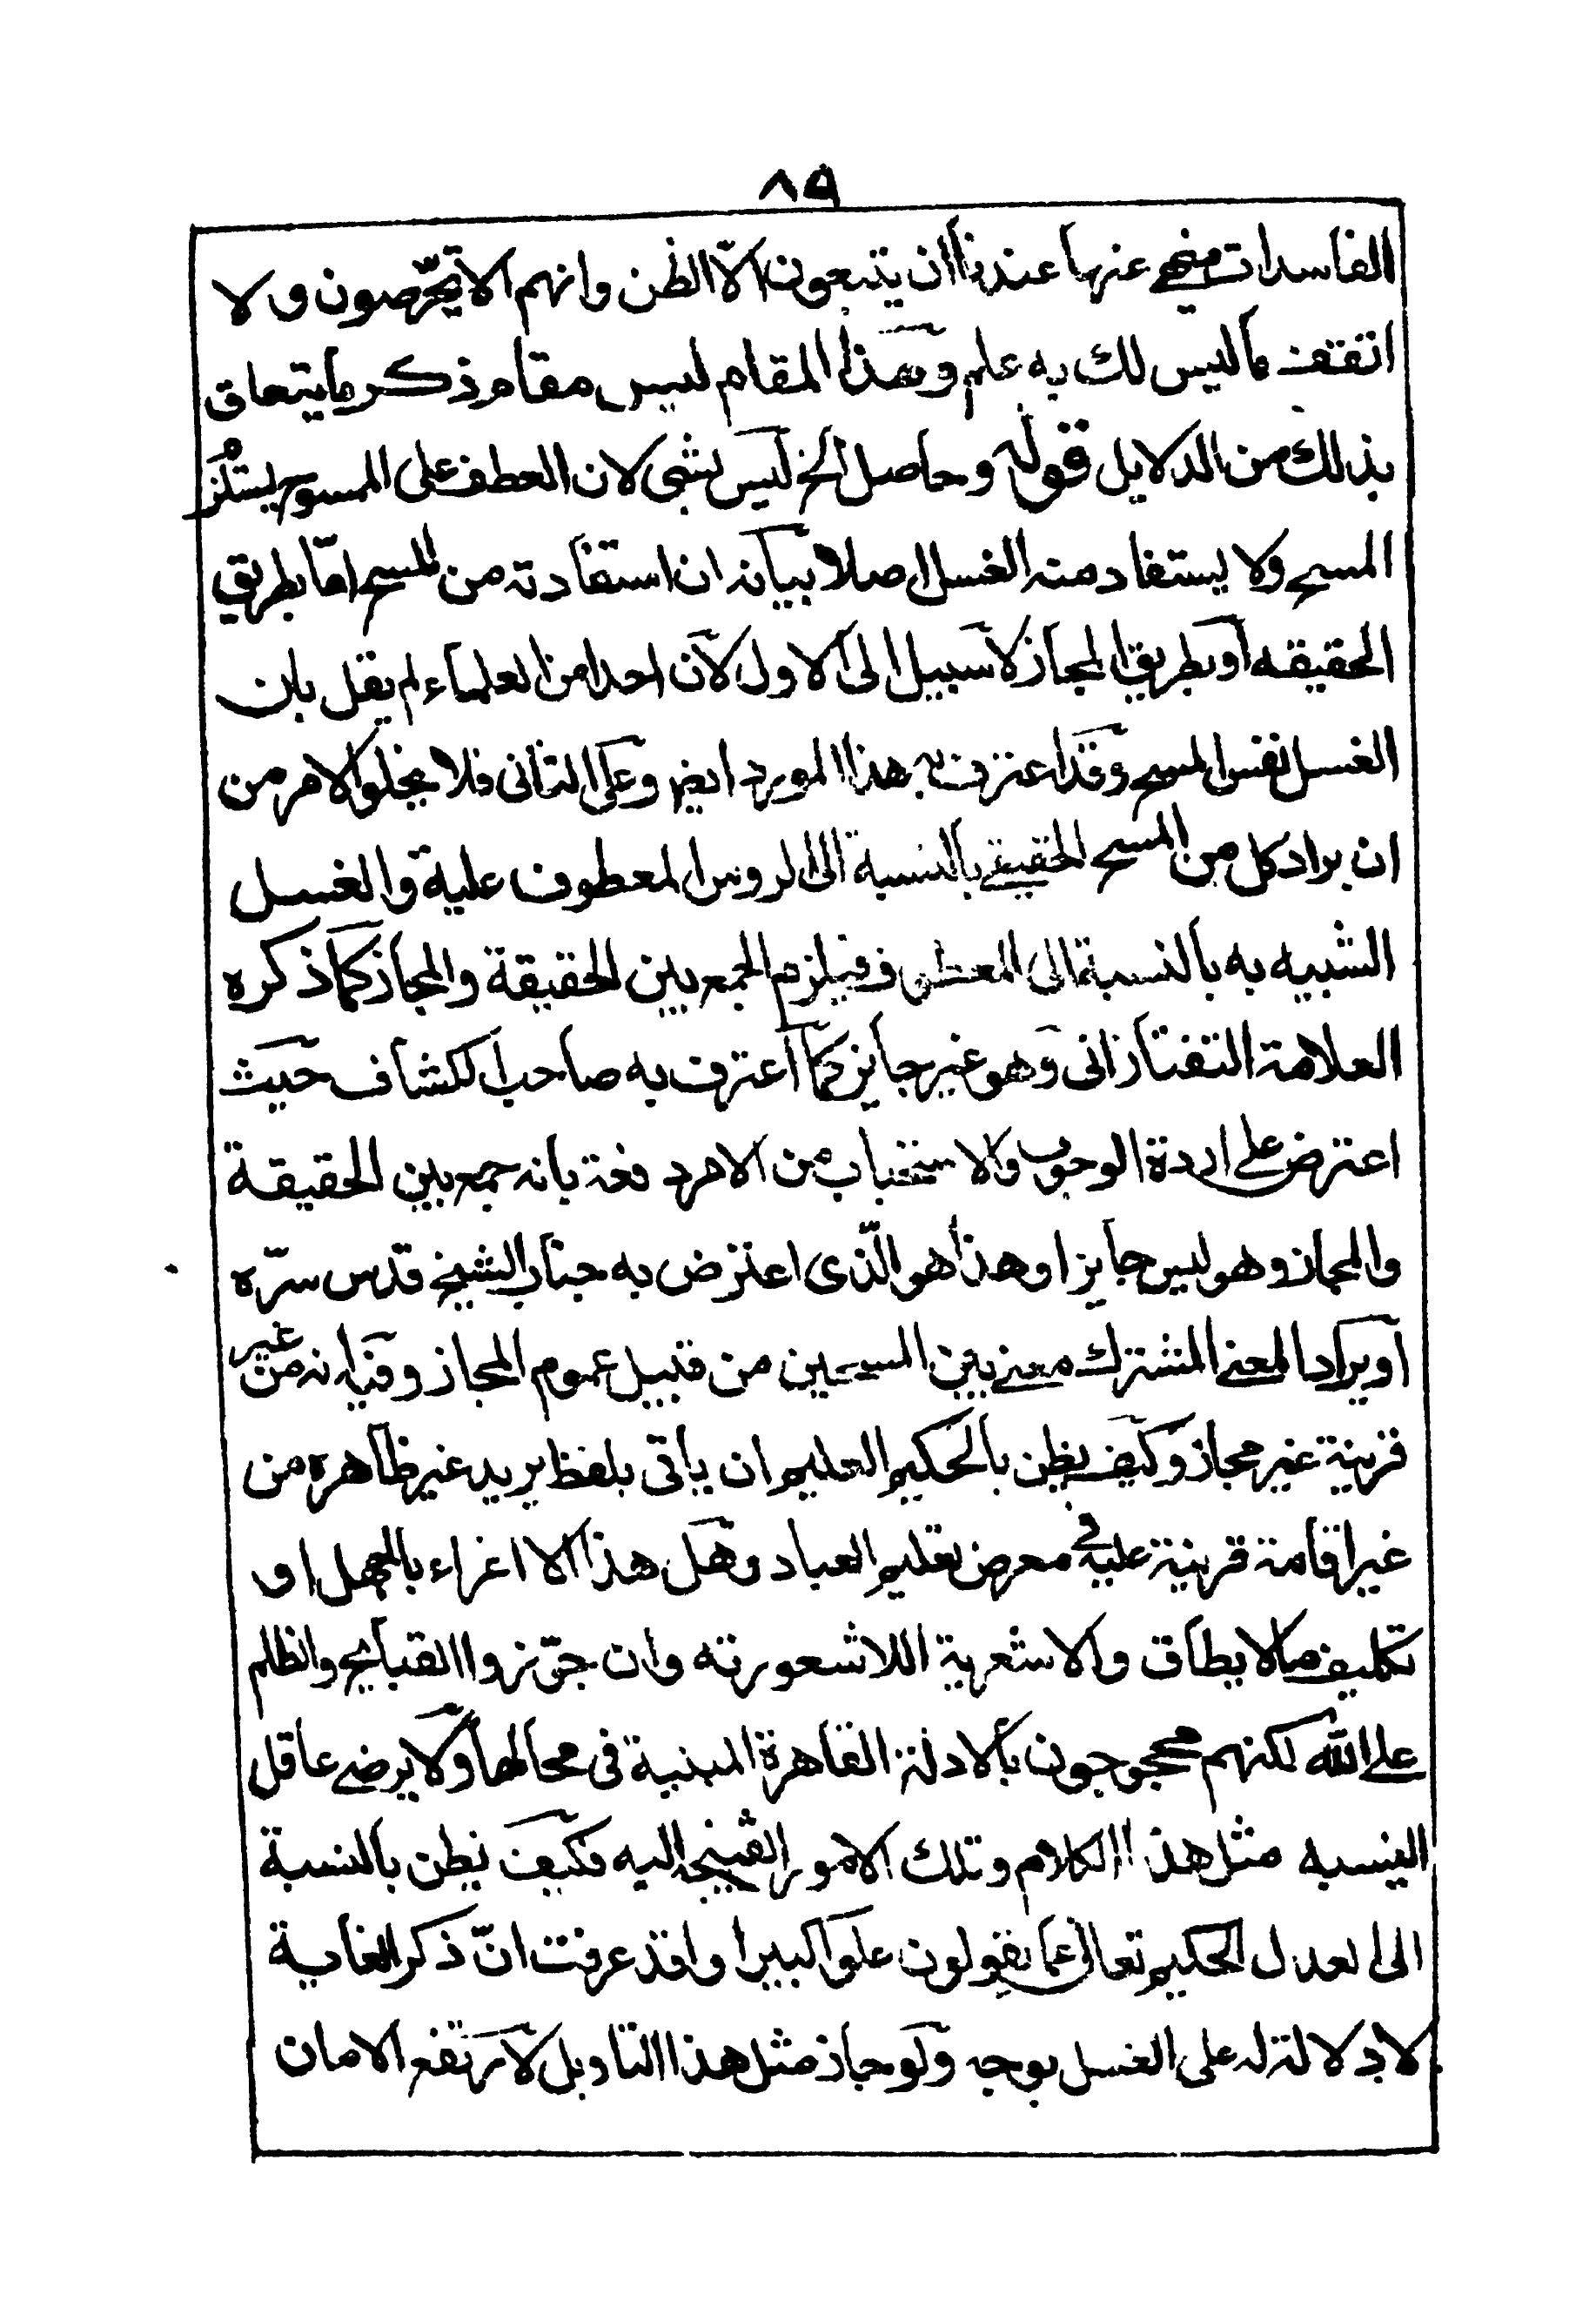 ٨٩
الفاسدات منهي عنها عندنا ان يتبعون الّا الظن وانهم الا يخرّصون ولا
اتقتف ماليس لك به علم وهذا المقام ليس مقام ذكر مايتعلق
بذلك من الدلايل قوله وحاصل الخ ليس بشى لان العطف على الممسوح يستلزم
المسح ولا يستفاد منه الغسل اصلا بيانه ان استفادته من المسح امّا بطريق
الحقيقه او بطريق المجاز لا سبيل الى الاول لان احدا من العلماء لم يقل بان
الغسل نفس المسح وقد اعترف به هذا المورد ايضا وعلى الثانى فلا يخلو الامر من
ان يراد كل من المسح الحقيقي بالنسبة الى الروس المعطوف علية والغسل
الشبيه به بالنسبة الى المعطوف فيلزم الجمع بين الحقيقة والمجاز كما ذكره
العلامة التفتازانى وهو غير جايز كما اعترف به صاحب الكشاف حيث
اعترض على اردة الوجوب والاستحباب من الامر دفعة بانه جمع بين الحقيقة
والمجاز وهو ليس جايزا وهذا هو الّذى اعترض به جناب الشيخ قدس سرّه
او يراد المعنے المشترك معنے بين المسحين من قبيل عموم المجاز وفيه انه من غير
قرينة غير مجاز وكيف يظن بالحكيم العليم ان ياتى بلفظ يريد غير ظاهره من
غير اقامة قرينة عليه في معرض تعليم العباد وهل هذا الا اغراء بالجهل او
تكليف مالا يطاق والاشعرية اللاشعورته وان جوّزوا القبايح والظلم
على الله لكنهم محجوجون بالادلة القاهرة المبنية فى محالها ولا يرضے عاقل
النسبه مثل هذا الكلام وتلك الامور القبيحه اليه فكيف يظن بالنسبة
الى العدل الحكيم تعالى عما يقولون علوا كبيرا وقد عرفت انّ ذكر الغاية
لا دلالة له على الغسل بوجه ولو جاز مثل هذا التاويل لارتفع الامان